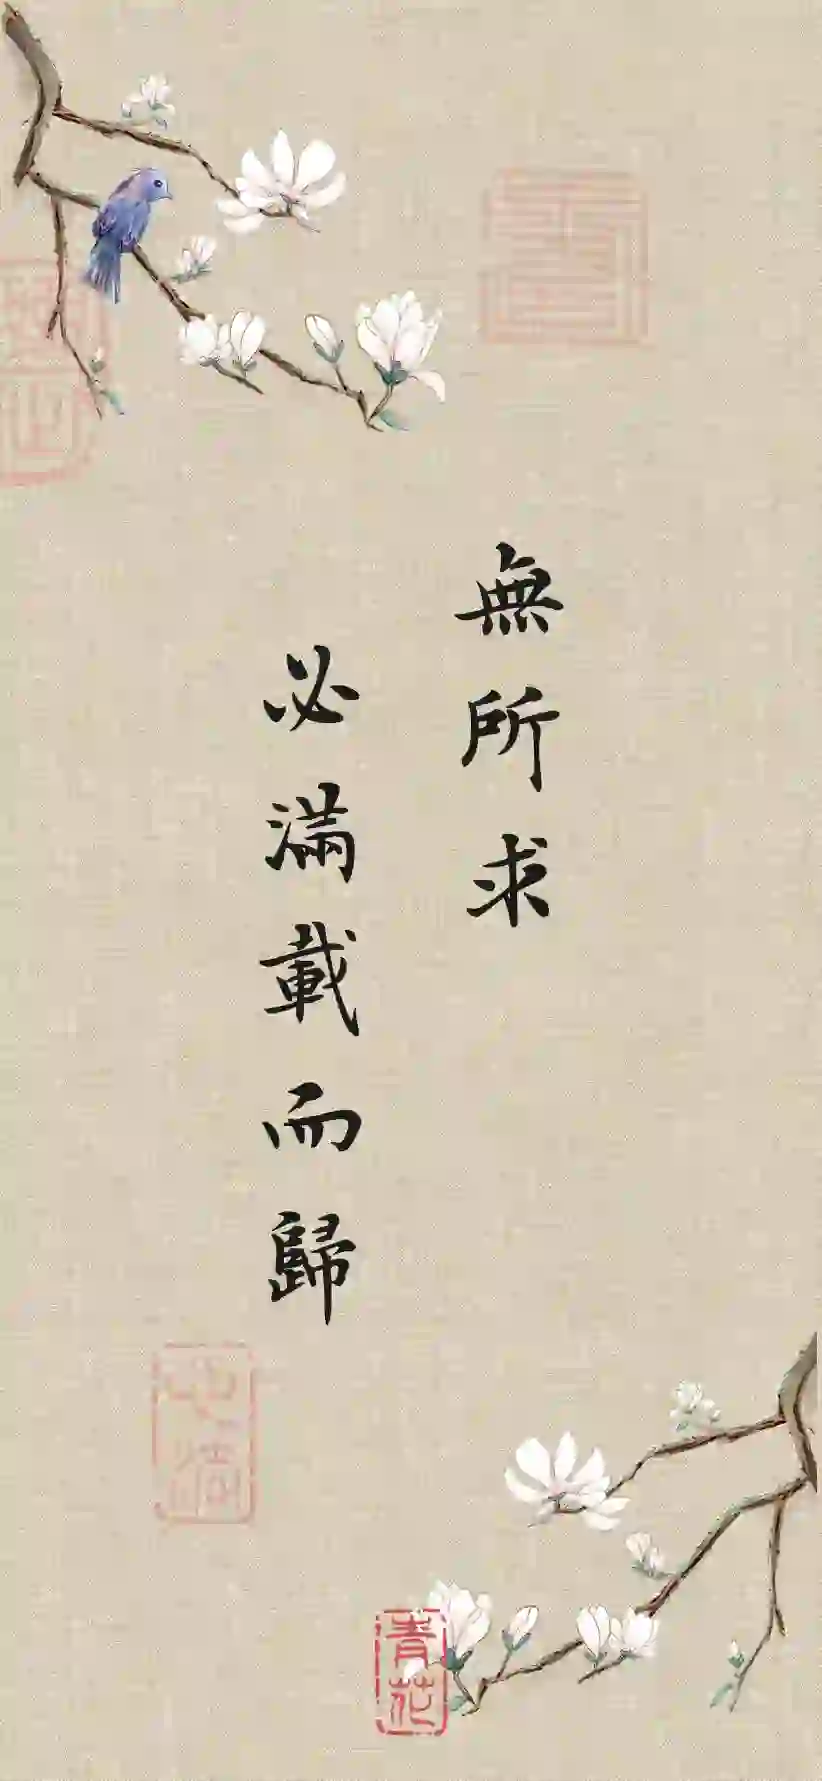 無所求
必滿載而歸
青花